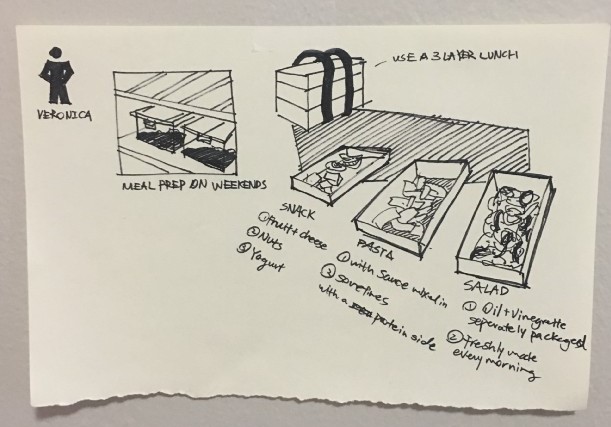 VERONICA
MEAL PREP ON WEEKENDS
USE A 3 LAYER LUNCH
SNACK
① fruit + cheese
② Nuts
③ Yogurt
PASTA
① with sauce mixed in
② sometimes
with a protein side
SALAD
① Oil + Vinegratte
seperately packaged
② freshly made
every morning